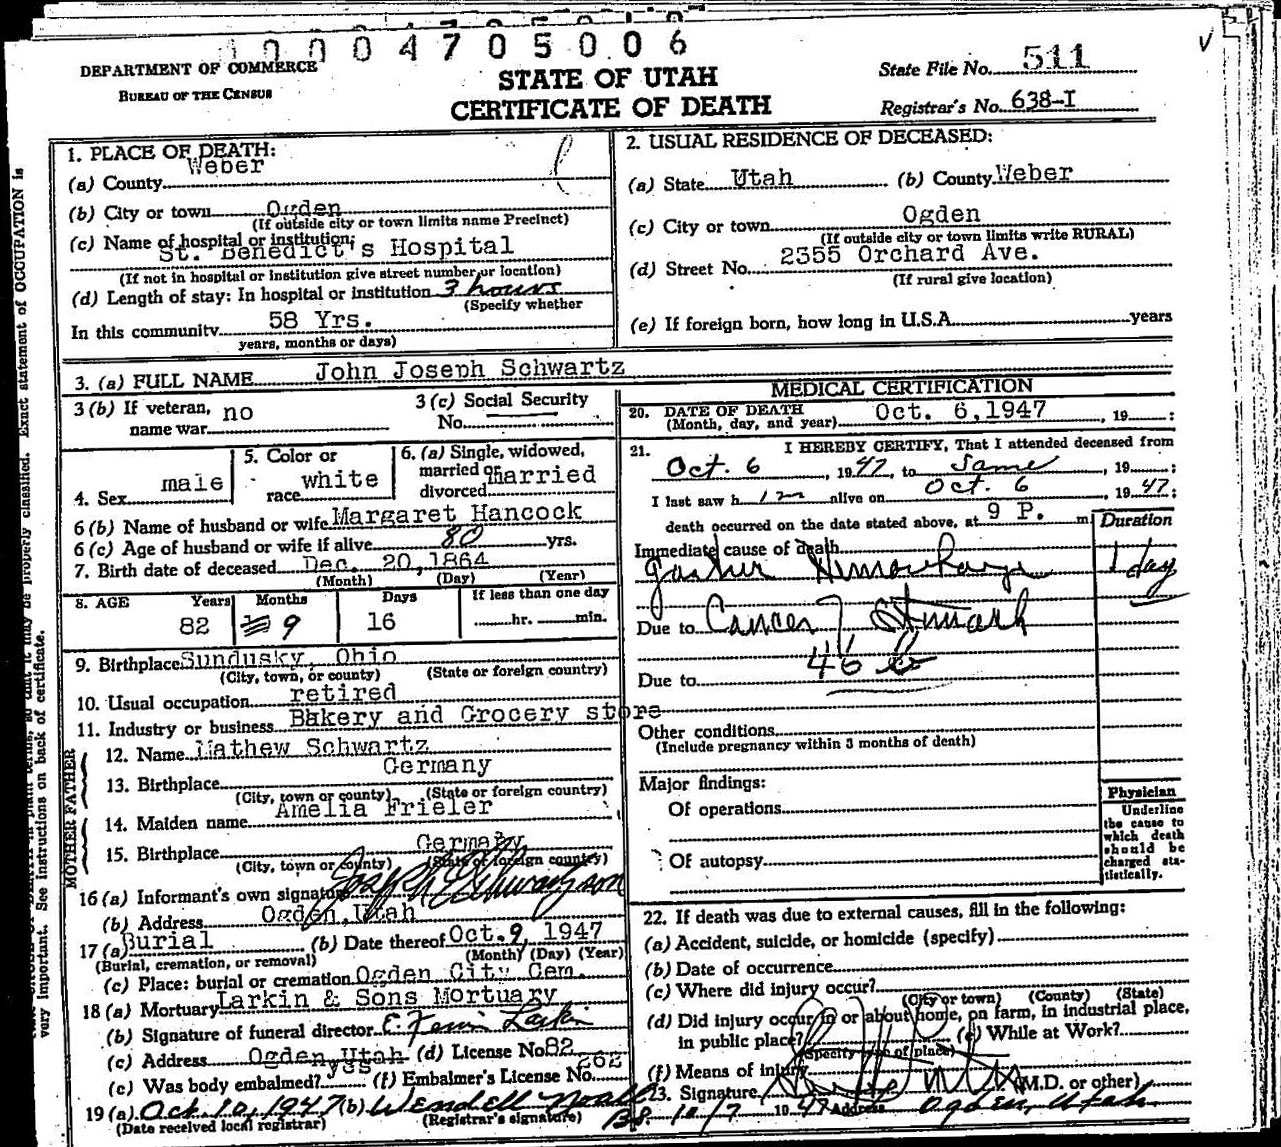 0004705006
DEPARTMENT OF COMMERCE
BUREAU OF THE CENSUS
STATE OF UTAH
CERTIFICATE OF DEATH
State File No. 511
Registrar's No. 638-I
1. PLACE OF DEATH:
(a) County Weber
(b) City or town Ogden
(If outside city or town limits name Precinct)
(c) Name of hospital or institution:
St. Benedict's Hospital
(If not in hospital or institution give street number or location)
(d) Length of stay: In hospital or institution 3 hours
(Specify whether
In this community 58 Yrs.
years, months or days)
2. USUAL RESIDENCE OF DECEASED:
(a) State Utah (b) County Weber
(c) City or town Ogden
(If outside city or town limits write RURAL)
(d) Street No. 2355 Orchard Ave.
(If rural give location)
(e) If foreign born, how long in U.S.A. years
3. (a) FULL NAME John Joseph Schwartz
3 (b) If veteran, no
name war
3 (c) Social Security
No.
4. Sex male
5. Color or
race white
6. (a) Single, widowed,
married or
divorced married
6 (b) Name of husband or wife Margaret Hancock
6 (c) Age of husband or wife if alive 80 yrs.
7. Birth date of deceased Dec. 20, 1864
(Month) (Day) (Year)
8. AGE Years Months Days If less than one day
82 9 16 hr. min.
9. Birthplace Sundusky, Ohio
(City, town, or county) (State or foreign country)
10. Usual occupation retired
11. Industry or business Bakery and Grocery store
FATHER
12. Name Mathew Schwartz
13. Birthplace Germany
(City, town or county) (State or foreign country)
MOTHER
14. Maiden name Amelia Frieler
15. Birthplace Germany
(City, town or county) (State or foreign country)
16 (a) Informant's own signature Joseph E Schwartz son
(b) Address Ogden, Utah
17 (a) Burial (b) Date thereof Oct. 9, 1947
(Burial, cremation, or removal) (Month) (Day) (Year)
(c) Place: burial or cremation Ogden City Cem.
18 (a) Mortuary Larkin & Sons Mortuary
(b) Signature of funeral director Larkin
(c) Address Ogden, Utah (d) License No. 82
(e) Was body embalmed? yes (f) Embalmer's License No. 262
19 (a) Oct. 10, 1947 (b) Wendell
(Date received local registrar) (Registrar's signature)
MEDICAL CERTIFICATION
20. DATE OF DEATH Oct. 6, 1947, 19 :
(Month, day, and year)
21. I HEREBY CERTIFY, That I attended deceased from
Oct. 6, 1947, to Same, 19 ;
I last saw h im alive on Oct. 6, 1947;
death occurred on the date stated above, at 9 P. m
Duration
Immediate cause of death
Gastric Hemorrhage 1 day
Due to Cancer of Stomach
46 b
Due to
Other conditions
(Include pregnancy within 3 months of death)
Major findings:
Of operations
Of autopsy
Physician
Underline
the cause to
which death
should be
charged sta-
tistically.
22. If death was due to external causes, fill in the following:
(a) Accident, suicide, or homicide (specify)
(b) Date of occurrence
(c) Where did injury occur?
(City or town) (County) (State)
(d) Did injury occur in or about home, on farm, in industrial place,
in public place? (e) While at Work?
(Specify type of place)
(f) Means of injury
23. Signature (M.D. or other)
10/7 1947 Address Ogden, Utah
very important. See instructions on back of certificate.
be properly classified. Exact statement of OCCUPATION is